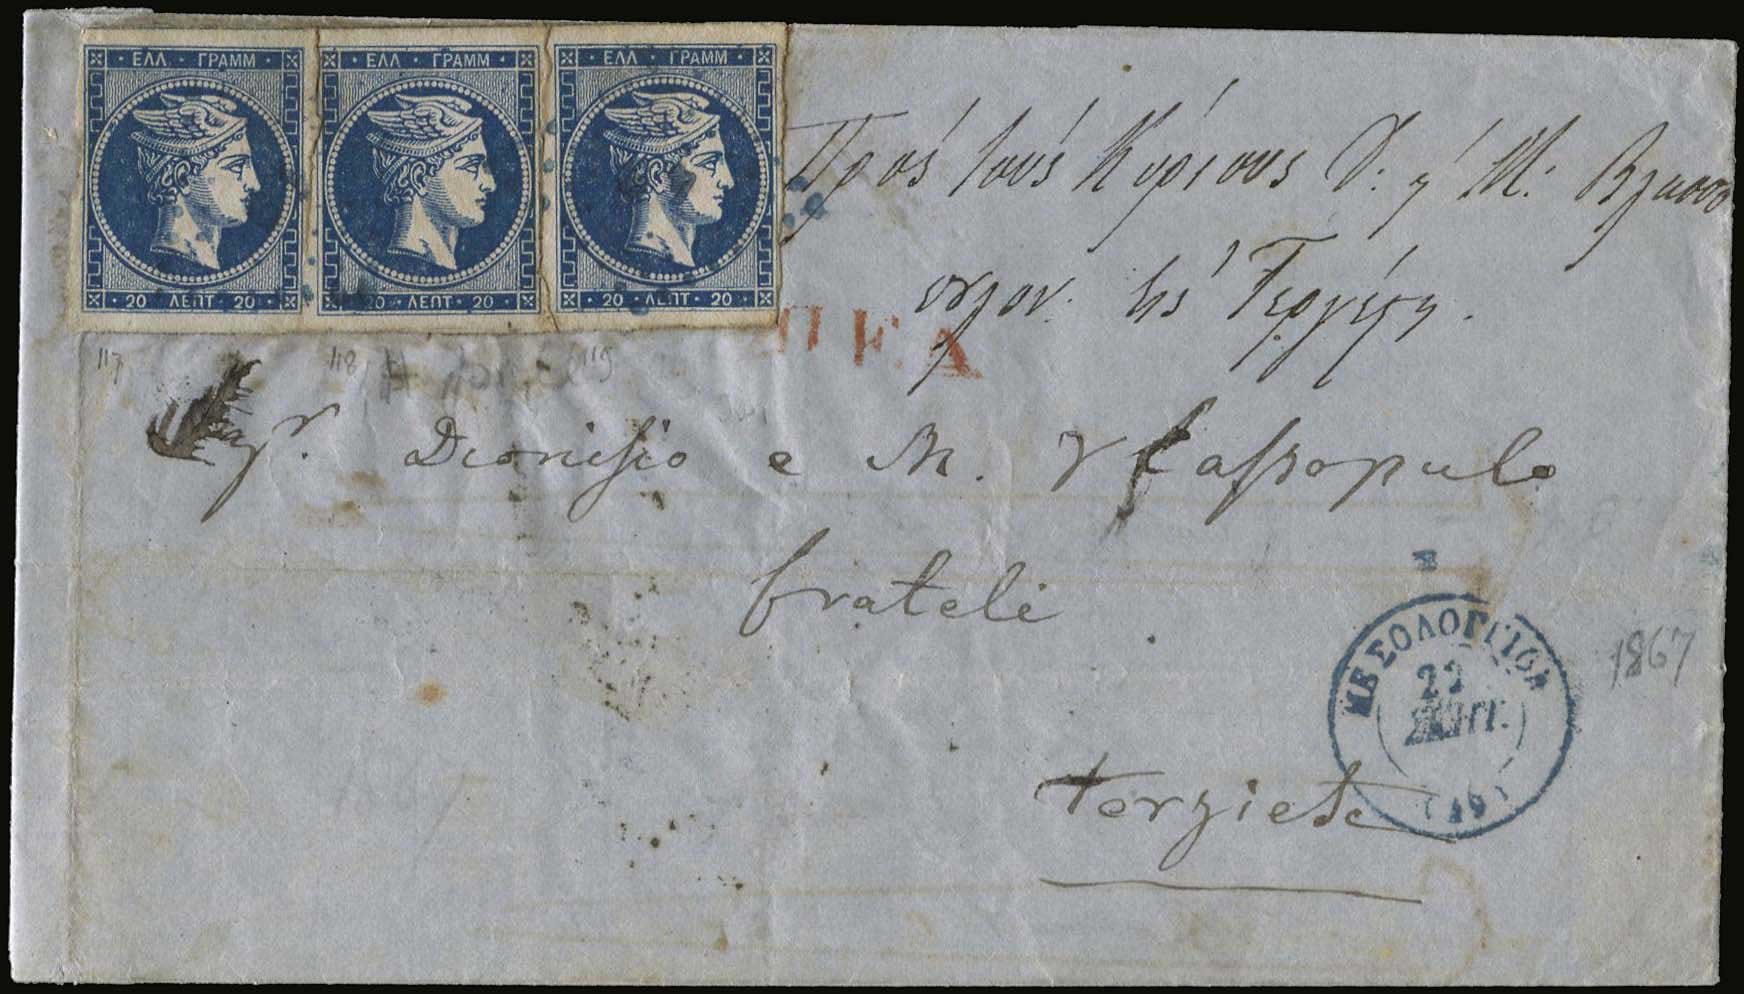 ΕΛΛ · ΓΡΑΜΜ
20 · ΛΕΠΤ · 20
ΕΛΛ · ΓΡΑΜΜ
20 · ΛΕΠΤ · 20
ΕΛΛ · ΓΡΑΜΜ
20 · ΛΕΠΤ · 20
Πρός τούς Κυρίους Δ: η Μ: Βλασσο
πουλον. εις Τεργέστη.
ΠΕΔ
117
118
119
Dionisio e M. Vlassopulo
frateli
ΜΕΣΟΛΟΓΓΙΟΝ
22
ΣΕΠΤ.
(49)
1867
terzieste